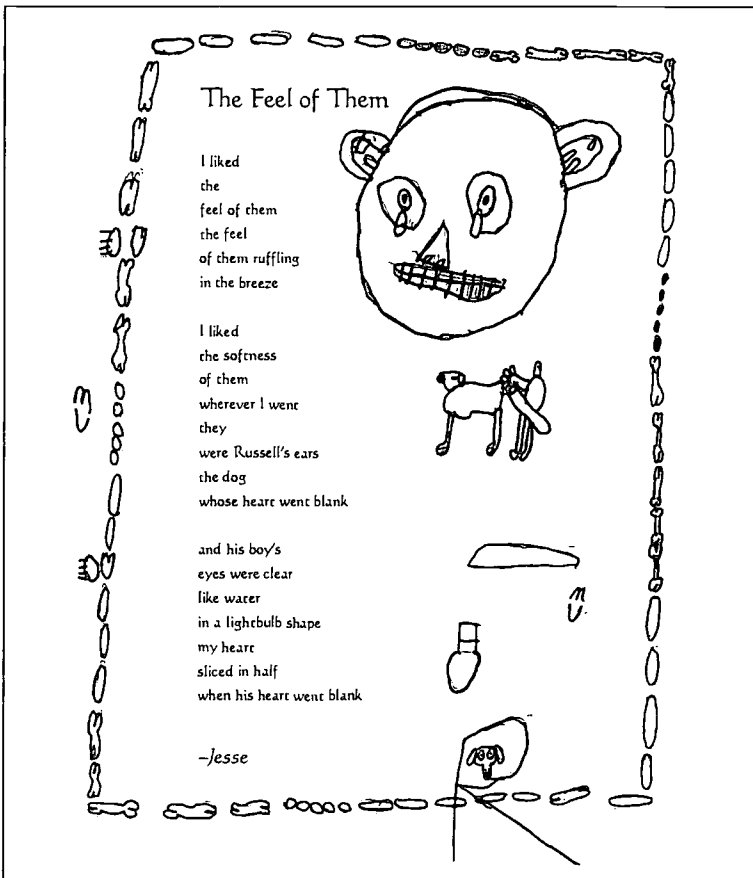 The Feel of Them
I liked
the
feel of them
the feel
of them ruffling
in the breeze
I liked
the softness
of them
wherever I went
they
were Russell's ears
the dog
whose heart went blank
and his boy's
eyes were clear
like water
in a lightbulb shape
my heart
sliced in half
when his heart went blank
–Jesse